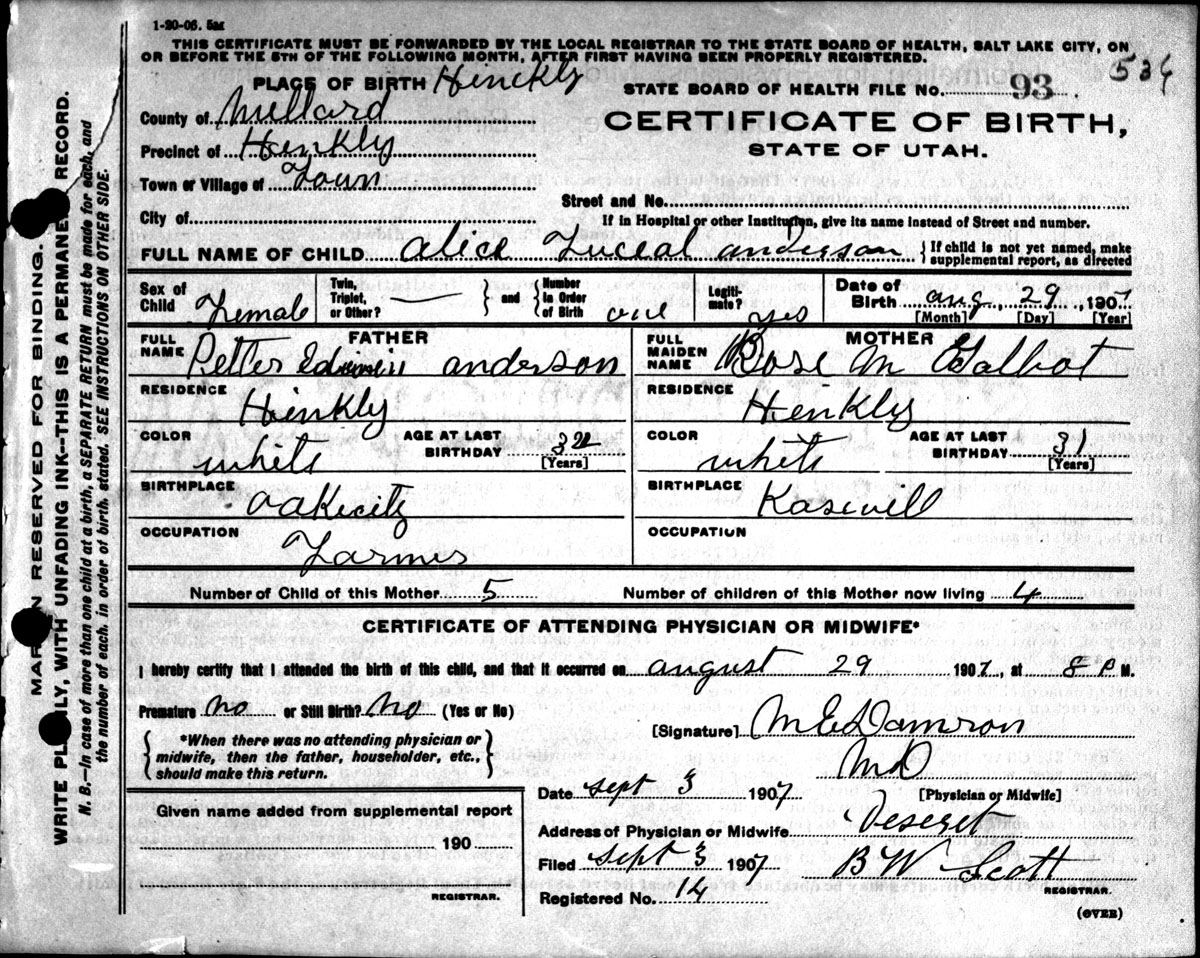 1-20-06. 5M
THIS CERTIFICATE MUST BE FORWARDED BY THE LOCAL REGISTRAR TO THE STATE BOARD OF HEALTH, SALT LAKE CITY, ON
OR BEFORE THE 5TH OF THE FOLLOWING MONTH, AFTER FIRST HAVING BEEN PROPERLY REGISTERED.
534
PLACE OF BIRTH Hinckly
STATE BOARD OF HEALTH FILE NO. 93
County of Millard
CERTIFICATE OF BIRTH,
STATE OF UTAH.
Precinct of Hinkly
Town or Village of Town
Street and No.
City of
If in Hospital or other Institution, give its name instead of Street and number.
FULL NAME OF CHILD Alice Luceal anderson
{If child is not yet named, make
supplemental report, as directed
Sex of Child Female
Twin, Triplet, or Other? —
} and {
Number in Order of Birth one
Legiti-mate? yes
Date of Birth aug 29 1907
[Month] [Day] [Year]
FATHER
FULL NAME Petter Edwin anderson
MOTHER
FULL MAIDEN NAME Rose M Talbot
RESIDENCE Hinkly
RESIDENCE Henkly
COLOR white
AGE AT LAST BIRTHDAY 32
[Years]
COLOR white
AGE AT LAST BIRTHDAY 31
[Years]
BIRTHPLACE oakicity
BIRTHPLACE Kasivill
OCCUPATION Farmer
OCCUPATION
Number of Child of this Mother 5
Number of children of this Mother now living 4
CERTIFICATE OF ATTENDING PHYSICIAN OR MIDWIFE*
I hereby certify that I attended the birth of this child, and that it occurred on august 29 1907, at 8 P M.
Premature no or Still Birth? No (Yes or No)
{*When there was no attending physician or
midwife, then the father, householder, etc.,
should make this return.}
[Signature] M E Damron
M D
[Physician or Midwife]
Date sept 3 1907
Address of Physician or Midwife Deseret
Filed Sept 3 1907
B W Scott
REGISTRAR.
Registered No. 14
(OVER)
Given name added from supplemental report
190
REGISTRAR.
MARGIN RESERVED FOR BINDING.
WRITE PLAINLY, WITH UNFADING INK--THIS IS A PERMANENT RECORD.
N. B.—In case of more than one child at a birth, a SEPARATE RETURN must be made for each, and
the number of each, in order of birth, stated. SEE INSTRUCTIONS ON OTHER SIDE.